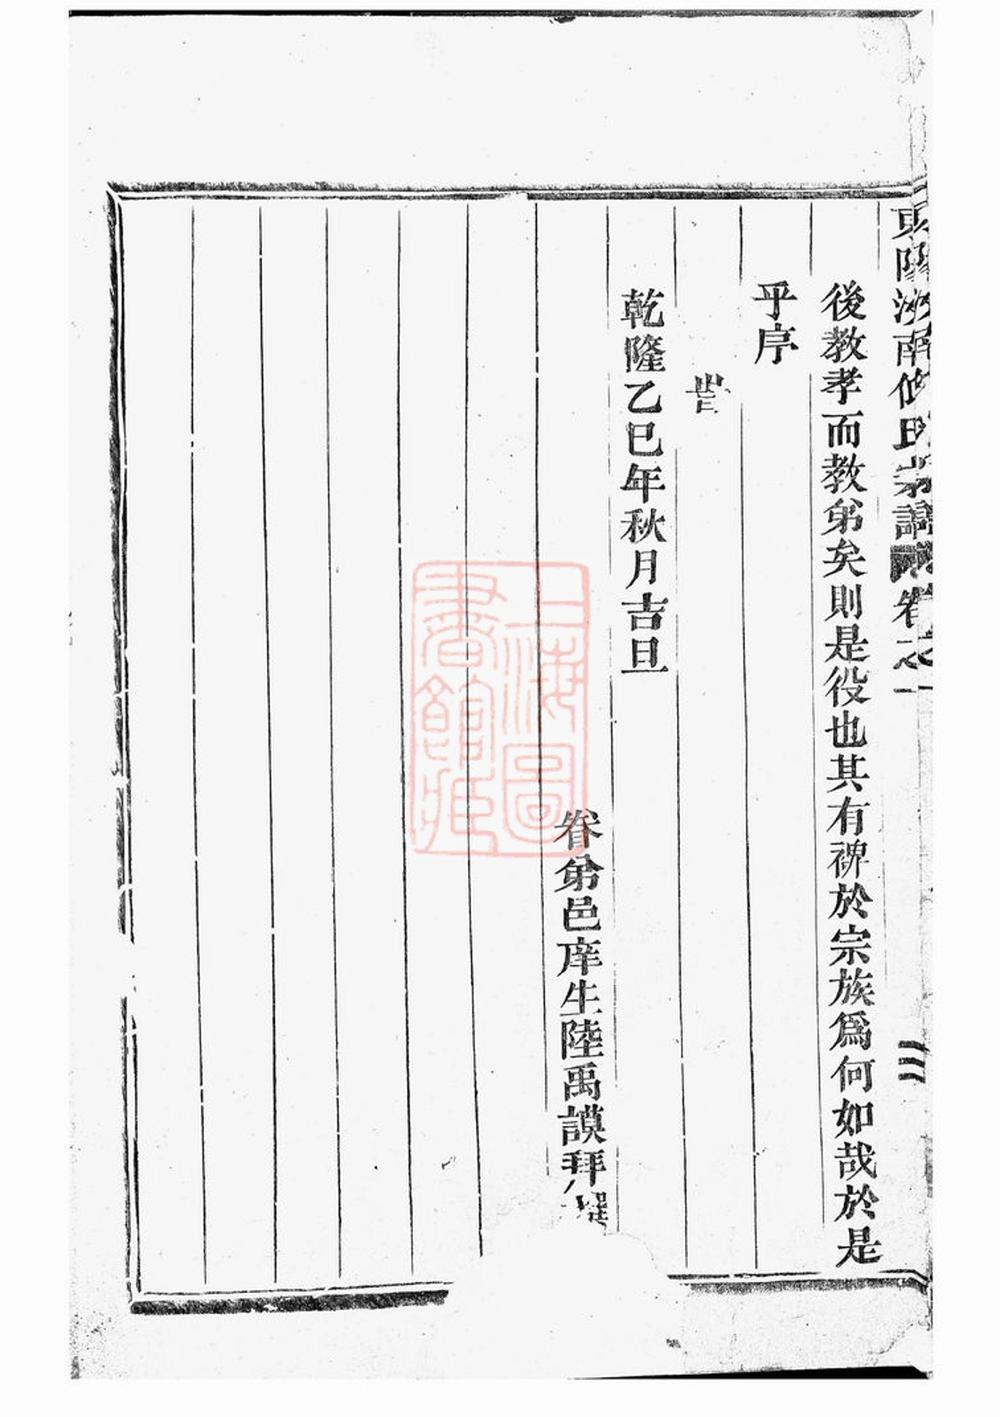 後教孝而教弟矣則是役也其有裨於宗族爲何如哉於是
乎序
旹
乾隆乙巳年秋月吉旦
眷弟邑庠生陸禹謨拜撰
南 氏宗譜 卷之一
三
上海圖書館藏